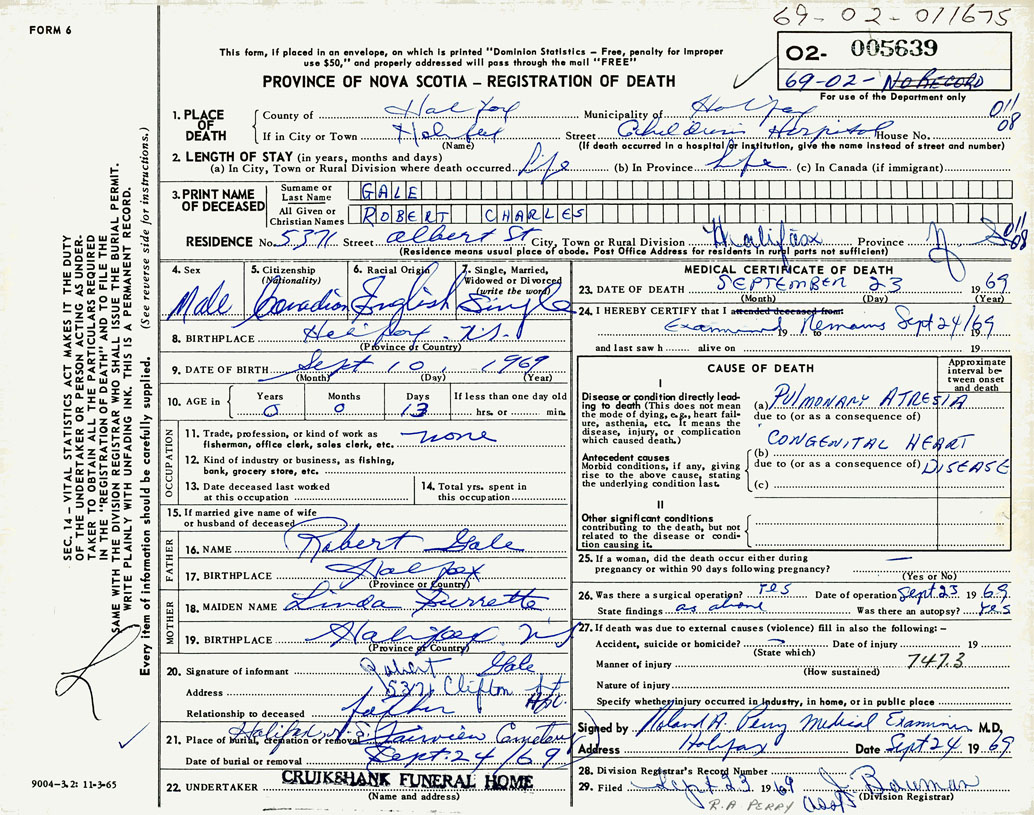 69-02-011675
FORM 6
This form, if placed in an envelope, on which is printed "Dominion Statistics – Free, penalty for improper
use $50," and properly addressed will pass through the mail "FREE"
02- 005639
69-02- NO RECORD
For use of the Department only
PROVINCE OF NOVA SCOTIA – REGISTRATION OF DEATH
011
08
1. PLACE OF DEATH
County of Halifax Municipality of Halifax
If in City or Town Halifax Street Children's Hospital House No.
(Name) (If death occurred in a hospital or institution, give the name instead of street and number)
2. LENGTH OF STAY (in years, months and days)
(a) In City, Town or Rural Division where death occurred Life (b) In Province Life (c) In Canada (if immigrant)
3. PRINT NAME OF DECEASED
Surname or Last Name GALE
All Given or Christian Names ROBERT CHARLES
RESIDENCE No. 5371 Street Albert St City, Town or Rural Division Halifax Province N. S 011 08
(Residence means usual place of abode. Post Office Address for residents in rural parts not sufficient)
4. Sex Male
5. Citizenship (Nationality) Canadian
6. Racial Origin English
7. Single, Married, Widowed or Divorced (write the word) Single
8. BIRTHPLACE Halifax N.S.
(Province or Country)
9. DATE OF BIRTH Sept 10, 1969
(Month) (Day) (Year)
10. AGE in Years 0 Months 0 Days 13 If less than one day old hrs. or min.
OCCUPATION
11. Trade, profession, or kind of work as fisherman, office clerk, sales clerk, etc. none
12. Kind of industry or business, as fishing, bank, grocery store, etc.
13. Date deceased last worked at this occupation
14. Total yrs. spent in this occupation
15. If married give name of wife or husband of deceased
FATHER
16. NAME Robert Gale
17. BIRTHPLACE Halifax
(Province or Country)
MOTHER
18. MAIDEN NAME Linda
19. BIRTHPLACE Halifax N S
(Province or Country)
20. Signature of informant Robert Gale
Address 5371 Clifton St Hfx.
Relationship to deceased father
21. Place of burial, cremation or removal Halifax N.S. Fairview Cemetery
Date of burial or removal Sept. 24/69
22. UNDERTAKER CRUIKSHANK FUNERAL HOME
(Name and address)
MEDICAL CERTIFICATE OF DEATH
23. DATE OF DEATH SEPTEMBER 23 1969
(Month) (Day) (Year)
24. I HEREBY CERTIFY that I attended deceased from:
Examined 19 to Remains Sept 24/69
and last saw h alive on 19
CAUSE OF DEATH
Approximate interval between onset and death
I
Disease or condition directly leading to death (This does not mean the mode of dying, e.g., heart failure, asthenia, etc. It means the disease, injury, or complication which caused death.)
(a) PULMONARY ATRESIA
due to (or as a consequence of)
Antecedent causes
Morbid conditions, if any, giving rise to the above cause, stating the underlying condition last.
(b) CONGENITAL HEART
due to (or as a consequence of) DISEASE
(c)
II
Other significant conditions
contributing to the death, but not related to the disease or condition causing it.
25. If a woman, did the death occur either during pregnancy or within 90 days following pregnancy? —
(Yes or No)
26. Was there a surgical operation? yes Date of operation Sept. 23 1969
State findings as above Was there an autopsy? yes
27. If death was due to external causes (violence) fill in also the following: –
Accident, suicide or homicide? Date of injury 19
(State which)
Manner of injury 747.3
(How sustained)
Nature of injury
Specify whether injury occurred in industry, in home, or in public place
Signed by Roland A. Perry Medical Examiner M.D,
Address Halifax Date Sept 24 1969
28. Division Registrar's Record Number
29. Filed Sept 23 1969 J. Bauman
R.A PERRY Ass't (Division Registrar)
SEC. 14 – VITAL STATISTICS ACT MAKES IT THE DUTY
OF THE UNDERTAKER OR PERSON ACTING AS UNDER-
TAKER TO OBTAIN ALL THE PARTICULARS REQUIRED
IN THE "REGISTRATION OF DEATH" AND TO FILE THE
SAME WITH THE DIVISION REGISTRAR WHO SHALL ISSUE THE BURIAL PERMIT.
WRITE PLAINLY WITH UNFADING INK. THIS IS A PERMANENT RECORD.
Every item of information should be carefully supplied. (See reverse side for instructions.)
9004–3.2: 11-3-65